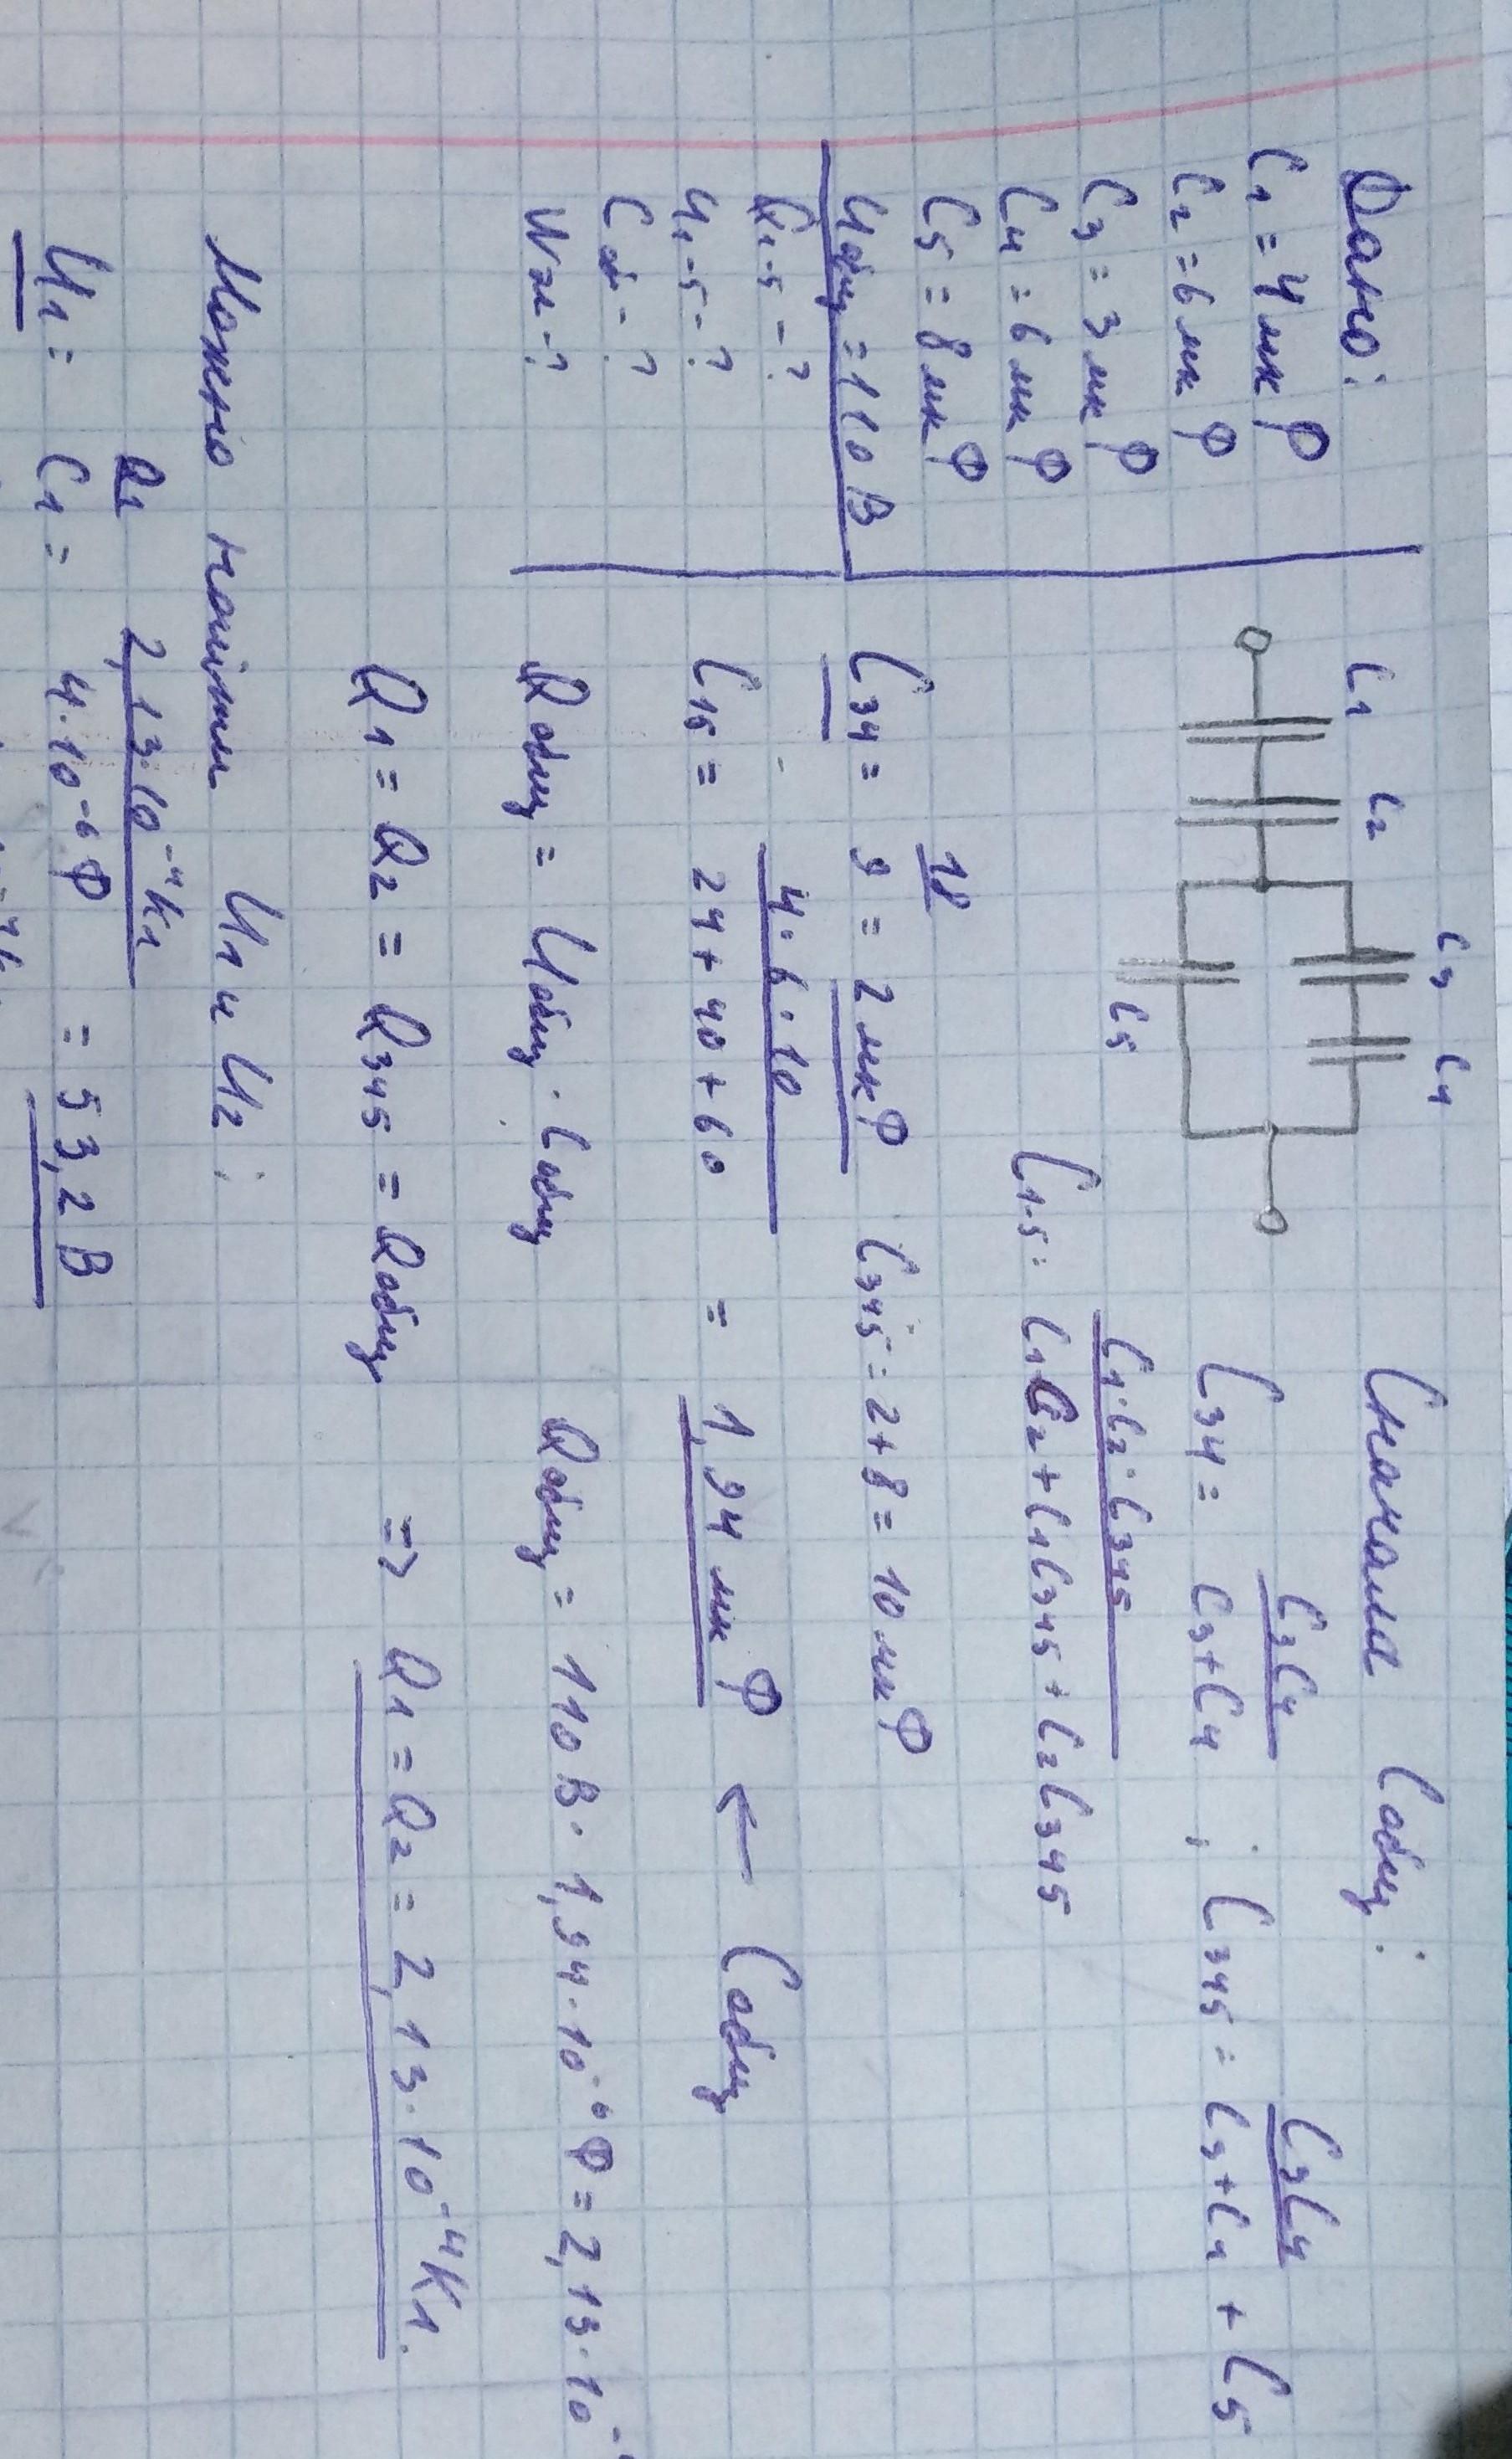 Дано:
C1 = 4 мкФ
C2 = 6 мкФ
C3 = 3 мкФ
C4 = 6 мкФ
C5 = 8 мкФ
Uобщ = 110 В
Q1-5 - ?
U1-5 - ?
Cоб - ?
Wэл - ?
C1 C2 C3 C4
C5
Сначала Cобщ:
C34 = C3C4 / C3+C4 ; C345 = C3C4 / C3+C4 + C5
C1-5 = C1·C2·C345 / C1C2 + C1C345 + C2C345
C34 = 18 / 9 = 2 мкФ C345 = 2+8 = 10 мкФ
C15 = 4·6·10 / 24+40+60 = 1,94 мкФ ← Cобщ
Qобщ = Uобщ · Cобщ Qобщ = 110 В · 1,94·10⁻⁶ Ф = 2,13·10⁻
Q1 = Q2 = Q345 = Qобщ => Q1 = Q2 = 2,13·10⁻⁴ Кл.
Можно найти U1 и U2:
U1 = Q1 / C1 = 2,13·10⁻⁴ Кл / 4·10⁻⁶ Ф = 53,2 В